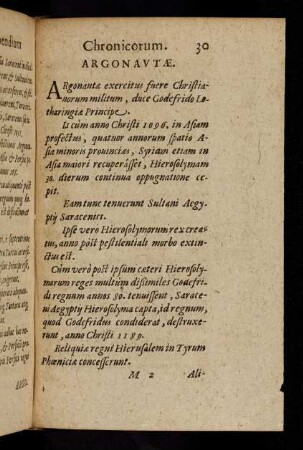 Chronicorum. 30
ARGONAVTÆ.
ARgonautæ exercitus fuere Christia-
norum militum, duce Godefrido Lo-
tharingiæ Principe.
Is cum anno Christi 1096, in Asiam
profectus, quatuor annorum spatio A-
siæ minoris prouincias, Syriam etiam in
Asia maiori recuperâsset, Hierosolymam
30. dierum continua oppugnatione ce-
pit.
Eam tunc tenuerunt Sultani Aegy-
ptij Saraceníci.
Ipse verò Hierosolymorum rex crea-
tus, anno pòst pestilentiali morbo extin-
ctus est.
Cùm verò pòst ipsum cæteri Hierosoly-
marum reges multùm dissimiles Godefri-
di regnum annos 90. tenuissent, Sarace-
ni Aegyptij Hierosolyma capta, id regnum,
quod Godefridus condiderat, destruxe-
runt, anno Christi 1199.
Reliquiæ regni Hierusalem in Tyrum
Phœniciæ concesserunt.
M 2 Ali-